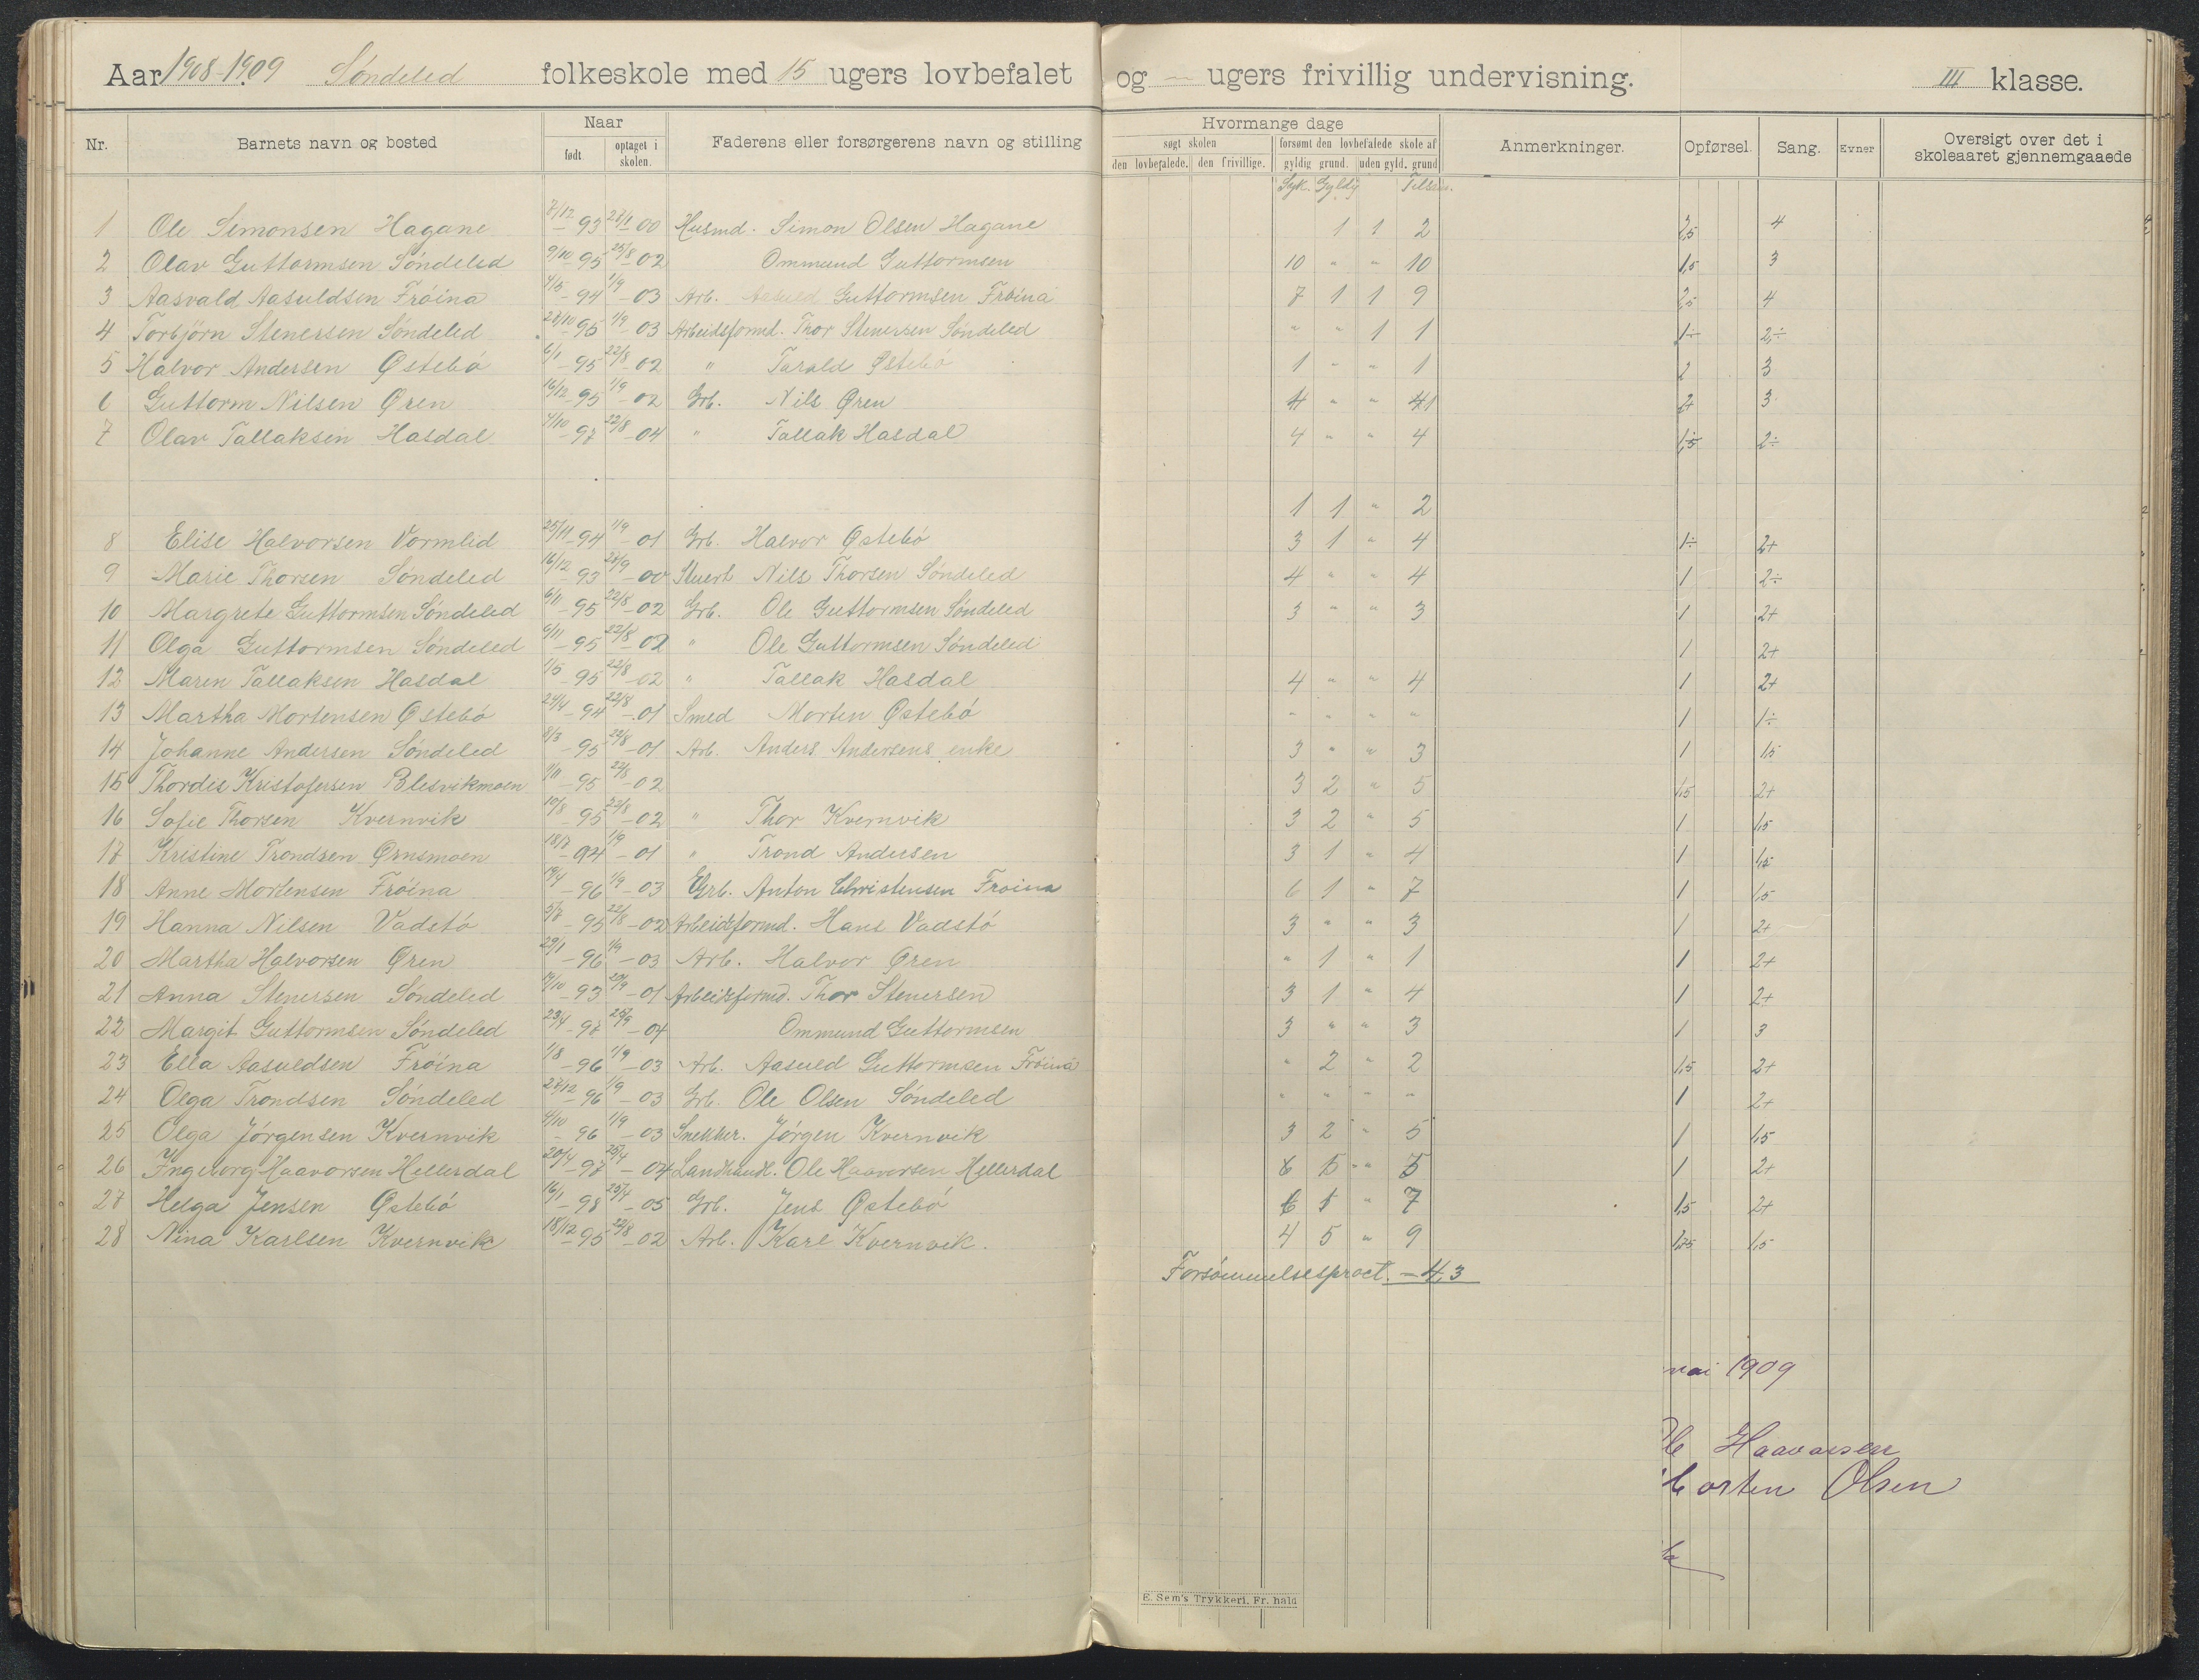 Aar 1908-1909 Söndeled folkeskole med 15 ugers lovbefalet og — ugers frivillig undervisning. III klasse.
Nr. Barnets navn og bosted Naar født. optaget i skolen. Faderens eller forsørgerens navn og stilling Hvormange dage søgt skolen den lovbefalede. den frivillige. forsømt den lovbefalede skole af gyldig grund. uden gyld. grund Anmerkninger. Opførsel. Sang. Evner Oversigt over det i skoleaaret gjennemgaaede
Syk. Gyldig
1 Ole Simonsen Hagane 7/12-93 28/1-00 Husmd. Simon Olsen Hagane 1 1 2 2,5 4
2 Olav Guttormsen Söndeled 9/10-95 25/8-02 Ommund Guttormsen 10 " " 10 1,5 3
3 Aasvald Aasuldsen Fröina 4/5-94 1/9-03 Arb. Aasuld Guttormsen Fröina 7 1 1 9 2,5 4
4 Torbjörn Stenersen Söndeled 28/10-95 1/9-03 Arbeidsformd. Thor Stenersen Söndeled " " 1 1 1÷ 2÷
5 Halvor Andersen Østebö 6/1-95 22/8-02 " Tarald Østebö 1 " " 1 2 3
6 Guttorm Nilsen Øren 16/12-95 1/9-02 Grb. Nils Øren 4 " " 41 2+ 3
7 Olav Tallaksen Hasdal 4/10-97 22/8-04 " Tallak Hasdal 4 " " 4 1,5÷ 2÷
1 1 " 2
8 Elise Halvorsen Vormlid 25/11-94 1/9-01 Grb. Halvor Østebö 3 1 " 4 1÷ 2+
9 Marie Thorsen Söndeled 16/12-93 28/9-00 Stuert Nils Thorsen Söndeled 4 " " 4 1 2÷
10 Margrete Guttormsen Söndeled 6/11-95 22/8-02 Grb. Ole Guttormsen Söndeled 3 " " 3 1 2+
11 Olga Guttormsen Söndeled 6/11-95 22/8-02 " Ole Guttormsen Söndeled 1 2+
12 Maren Tallaksen Hasdal 1/5-95 22/8-02 " Tallak Hasdal 4 " " 4 1 2+
13 Martha Mortensen Østebö 24/4-94 22/8-01 Smed Morten Østebö " " " " 1 1÷
14 Johanne Andersen Söndeled 8/3-95 22/8-01 Arb. Anders Andersens enke 3 " " 3 1 1,5
15 Thordis Kristofersen Blesvikmoen 9/11-95 22/8-02 3 2 " 5 1,5 2+
16 Sofie Thorsen Kvernvik 10/8-95 22/8-02 " Thor Kvernvik 3 2 " 5 1 1,5
17 Kristine Trondsen Ørnsmoen 18/7-94 1/9-01 " Trond Andersen 3 1 " 4 1 1,5
18 Anne Mortensen Fröina 19/4-96 1/9-03 Grb. Anton Christensen Froina 6 1 " 7 1 1,5
19 Hanna Nilsen Vadstö 3/7-95 22/8-02 Arbeidsformd. Hans Vadstö 3 " " 3 1 2+
20 Martha Halvorsen Øren 29/1-96 1/9-03 Arb. Halvor Øren " 1 " 1 1 2+
21 Anna Stenersen Söndeled 14/10-93 20/9-01 Arbeidsformd. Thor Stenersen 3 1 " 4 1 2+
22 Margit Guttormsen Söndeled 23/4-97 25/9-04 Ommund Guttormsen 3 " " 3 1 3
23 Ella Aasuldsen Fröina 1/8-96 1/9-03 Arb. Aasuld Guttormsen Fröina " 2 " 2 1,5 2+
24 Olga Trondsen Söndeled 27/12-96 1/9-03 Grb. Ole Olsen Söndeled " " " " 1 2+
25 Olga Jörgensen Kvernvik 4/10-96 1/9-03 Snekker. Jörgen Kvernvik 3 2 " 5 1 1,5
26 Ingeborg Haavorsen Hellerdal 20/4-97 25/4-04 Landhandl. Ole Haavorsen Hellerdal 5 " 5 1 2+
27 Helga Jensen Østebö 16/1-98 25/4-05 Grb. Jens Østebö 6 1 " 7 1,5 2+
28 Nina Karlsen Kvernvik 18/12-95 22/8-02 Arb. Karl Kvernvik. 4 5 " 9 1,25 1,5
Forsömmelsesproct. - 4,3
mai 1909
Haavorsen
orten Olsen
E. Sem's Trykkeri, Fr. hald